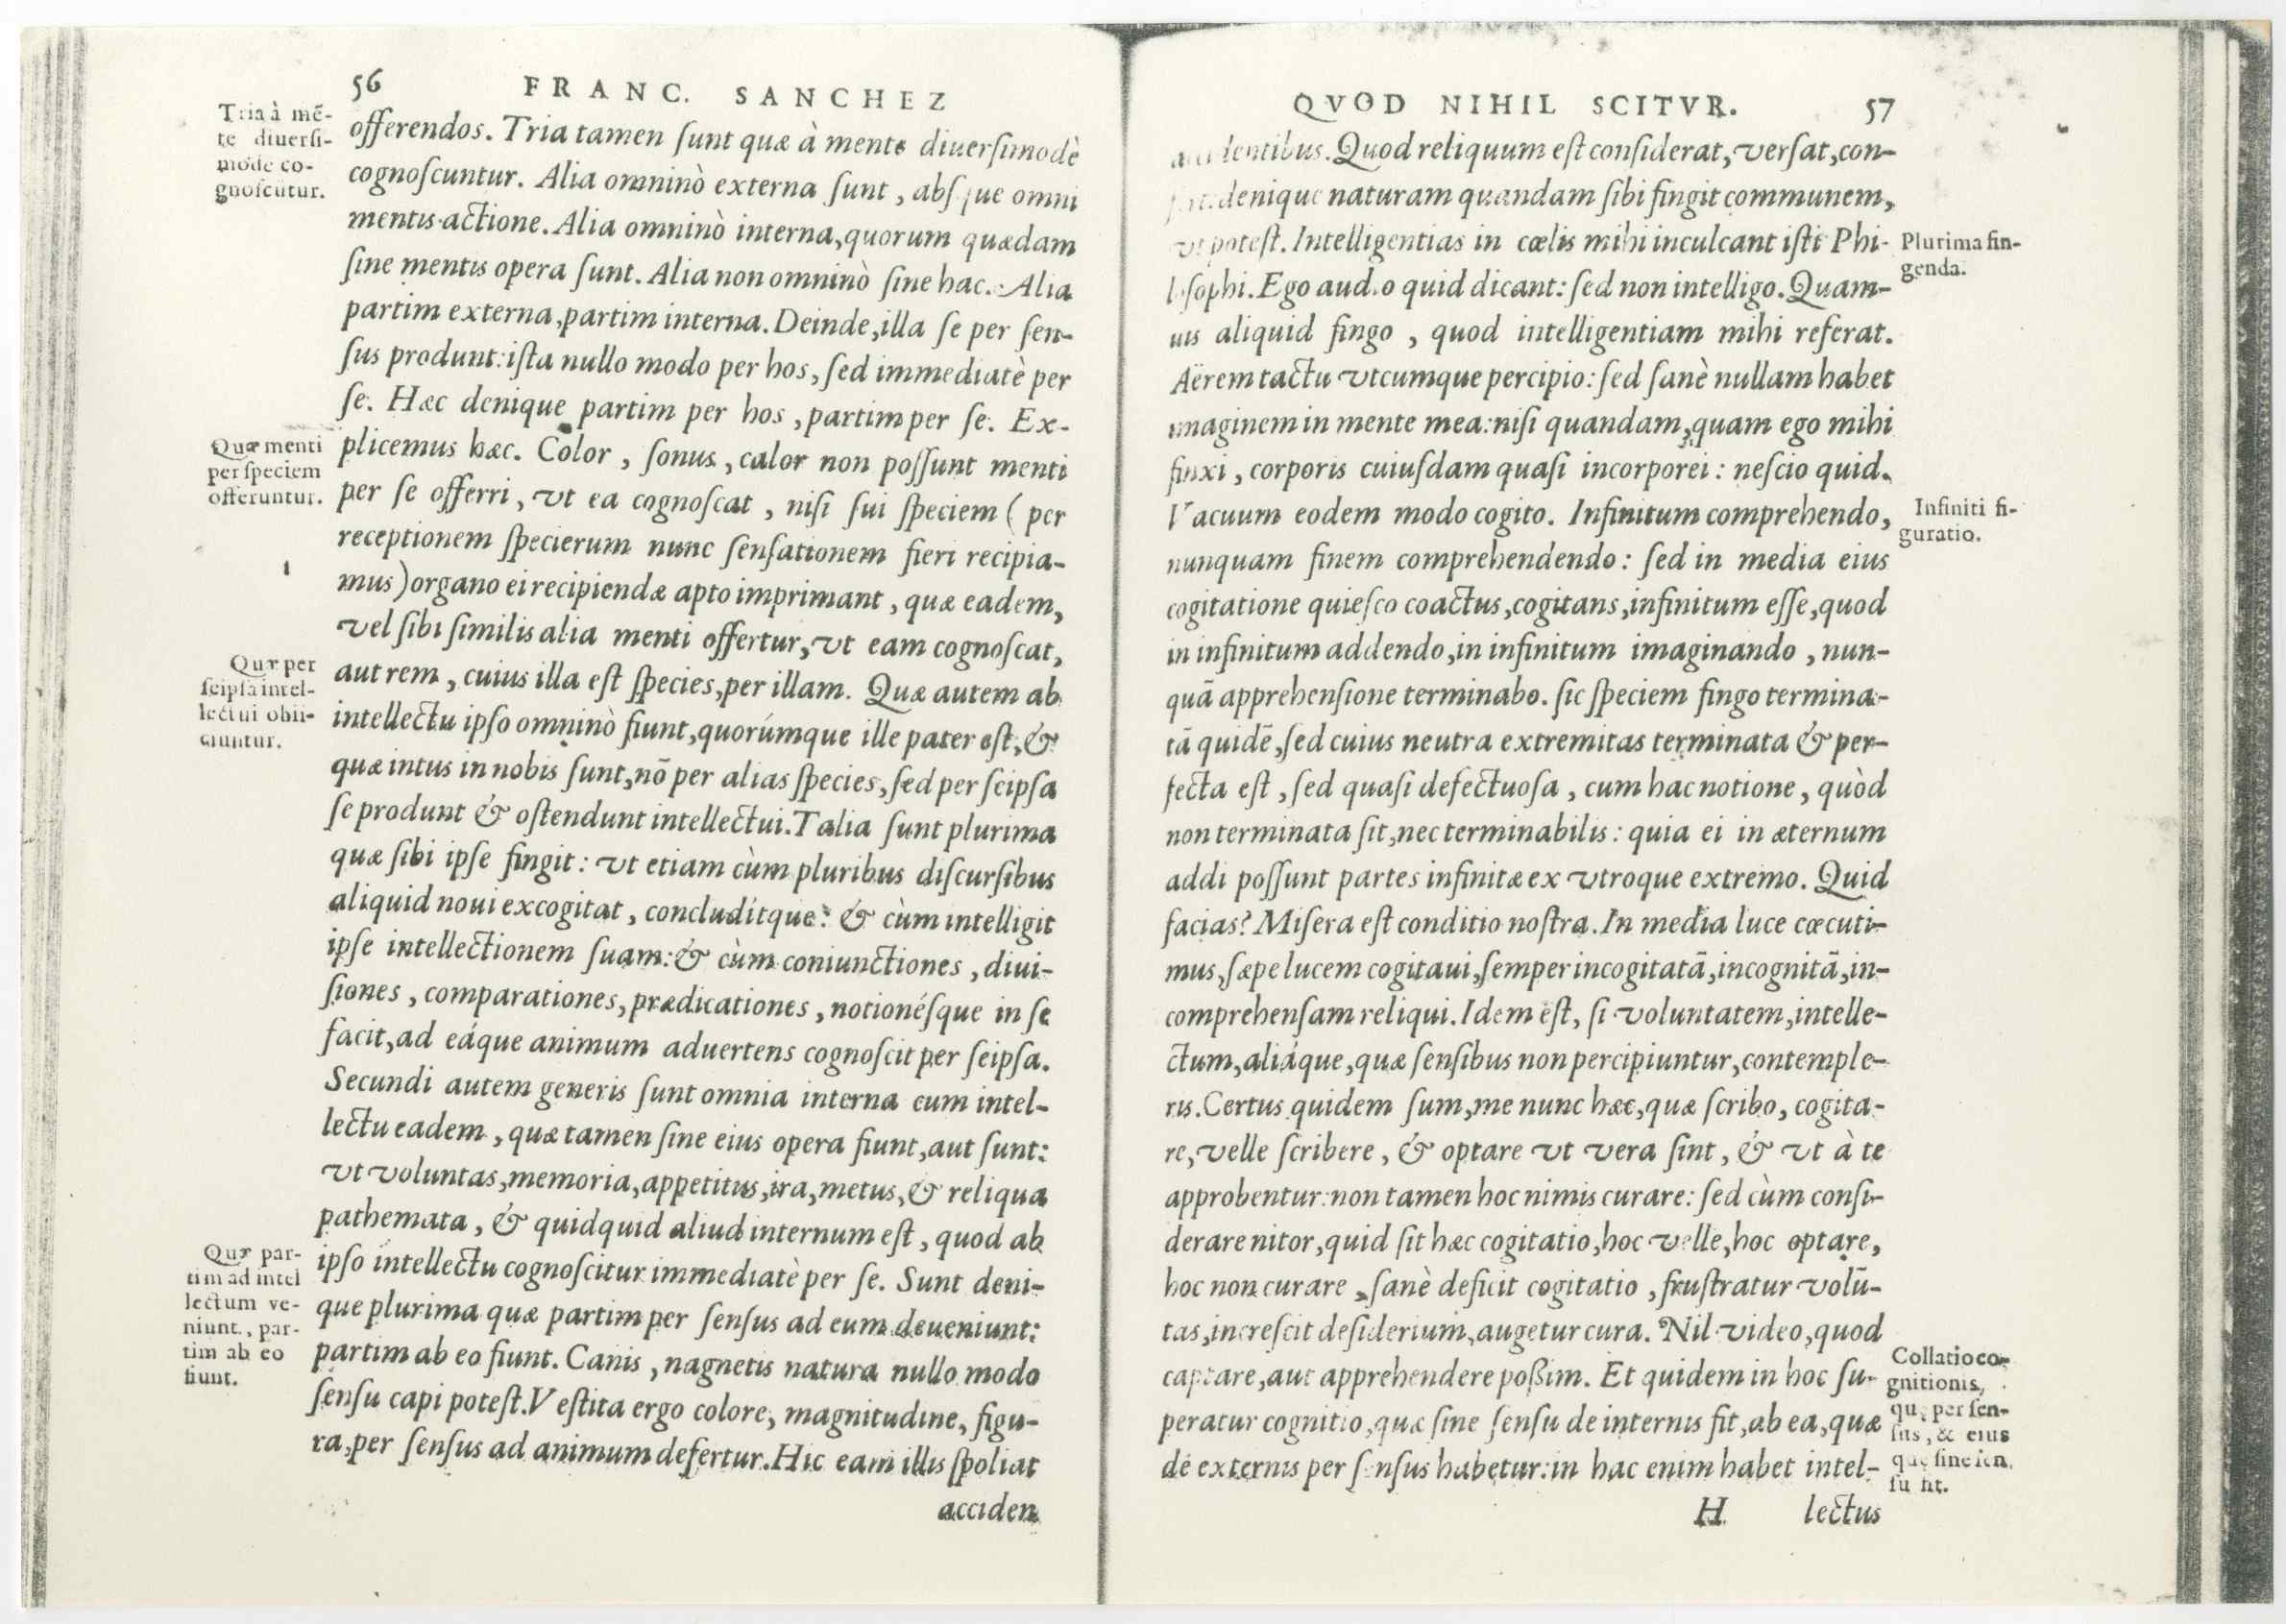 56 FRANC. SANCHEZ
Tria à mẽ-
te diuersi-
mode co-
gnoscũtur.
offerendos. Tria tamen sunt quæ à mente diuersimodè
cognoscuntur. Alia omninò externa sunt, absque omni
mentis actione. Alia omninò interna, quorum quædam
sine mentis opera sunt. Alia non omninò sine hac. Alia
partim externa, partim interna. Deinde, illa se per sen-
sus produnt: ista nullo modo per hos, sed immediatè per
se. Hæc denique partim per hos, partim per se. Ex-
Quæ menti
per speciem
offeruntur.
plicemus hæc. Color, sonus, calor non possunt menti
per se offerri, vt ea cognoscat, nisi sui speciem (per
receptionem specierum nunc sensationem fieri recipia-
mus) organo ei recipiendæ apto imprimant, quæ eadem,
vel sibi similis alia menti offertur, vt eam cognoscat,
Quæ per
seipsa intel-
lectui obii-
ciuntur.
aut rem, cuius illa est species, per illam. Quæ autem ab
intellectu ipso omninò fiunt, quorúmque ille pater est, &
quæ intus in nobis sunt, nõ per alias species, sed per seipsa
se produnt & ostendunt intellectui. Talia sunt plurima
quæ sibi ipse fingit: vt etiam cùm pluribus discursibus
aliquid noui excogitat, concludítque: & cùm intelligit
ipse intellectionem suam: & cùm coniunctiones, diui-
siones, comparationes, prædicationes, notionésque in se
facit, ad eáque animum aduertens cognoscit per seipsa.
Secundi autem generis sunt omnia interna cum intel-
lectu eadem, quæ tamen sine eius opera fiunt, aut sunt:
vt voluntas, memoria, appetitus, ira, metus, & reliqua
pathemata, & quidquid aliud internum est, quod ab
Quæ par-
tim ad intel
lectum ve-
niunt, par-
tim ab eo
fiunt.
ipso intellectu cognoscitur immediatè per se. Sunt deni-
que plurima quæ partim per sensus ad eum deueniunt:
partim ab eo fiunt. Canis, nagnetis natura nullo modo
sensu capi potest. Vestita ergo colore, magnitudine, figu-
ra, per sensus ad animum defertur. Hic eam illis spoliat
acciden
QVOD NIHIL SCITVR. 57
accidentibus. Quod reliquum est considerat, versat, con-
denique naturam quandam sibi fingit communem,
vt potest. Intelligentias in cœlis mihi inculcant isti Phi-
Plurima fin-
genda.
losophi. Ego audio quid dicant: sed non intelligo. Quam-
uis aliquid fingo, quod intelligentiam mihi referat.
Aërem tactu vtcumque percipio: sed sanè nullam habet
imaginem in mente mea: nisi quandam, quam ego mihi
finxi, corporis cuiusdam quasi incorporei: nescio quid.
Vacuum eodem modo cogito. Infinitum comprehendo,
Infiniti fi-
guratio.
nunquam finem comprehendendo: sed in media eius
cogitatione quiesco coactus, cogitans, infinitum esse, quod
in infinitum addendo, in infinitum imaginando, nun-
quã apprehensione terminabo. sic speciem fingo termina-
tã quidẽ, sed cuius neutra extremitas terminata & per-
fecta est, sed quasi defectuosa, cum hac notione, quòd
non terminata sit, nec terminabilis: quia ei in æternum
addi possunt partes infinitæ ex vtroque extremo. Quid
facias? Misera est conditio nostra. In media luce cœcuti-
mus, sæpe lucem cogitaui, semper incogitatã, incognitã, in-
comprehensam reliqui. Idem est, si voluntatem, intelle-
ctum, aliáque, quæ sensibus non percipiuntur, contemple-
ris. Certus quidem sum, me nunc hæc, quæ scribo, cogita-
re, velle scribere, & optare vt vera sint, & vt à te
approbentur: non tamen hoc nimis curare: sed cùm consi-
derare nitor, quid sit hæc cogitatio, hoc velle, hoc optare,
hoc non curare, sanè deficit cogitatio, frustratur volũ-
tas, increscit desiderium, augetur cura. Nil video, quod
captare, aut apprehendere possim. Et quidem in hoc su-
Collatio co-
gnitionis,
quę per sen-
sus, & eius
quę sine sen
su fit.
peratur cognitio, quæ sine sensu de internis fit, ab ea, quæ
de externis per sensus habetur: in hac enim habet intel-
H lectus